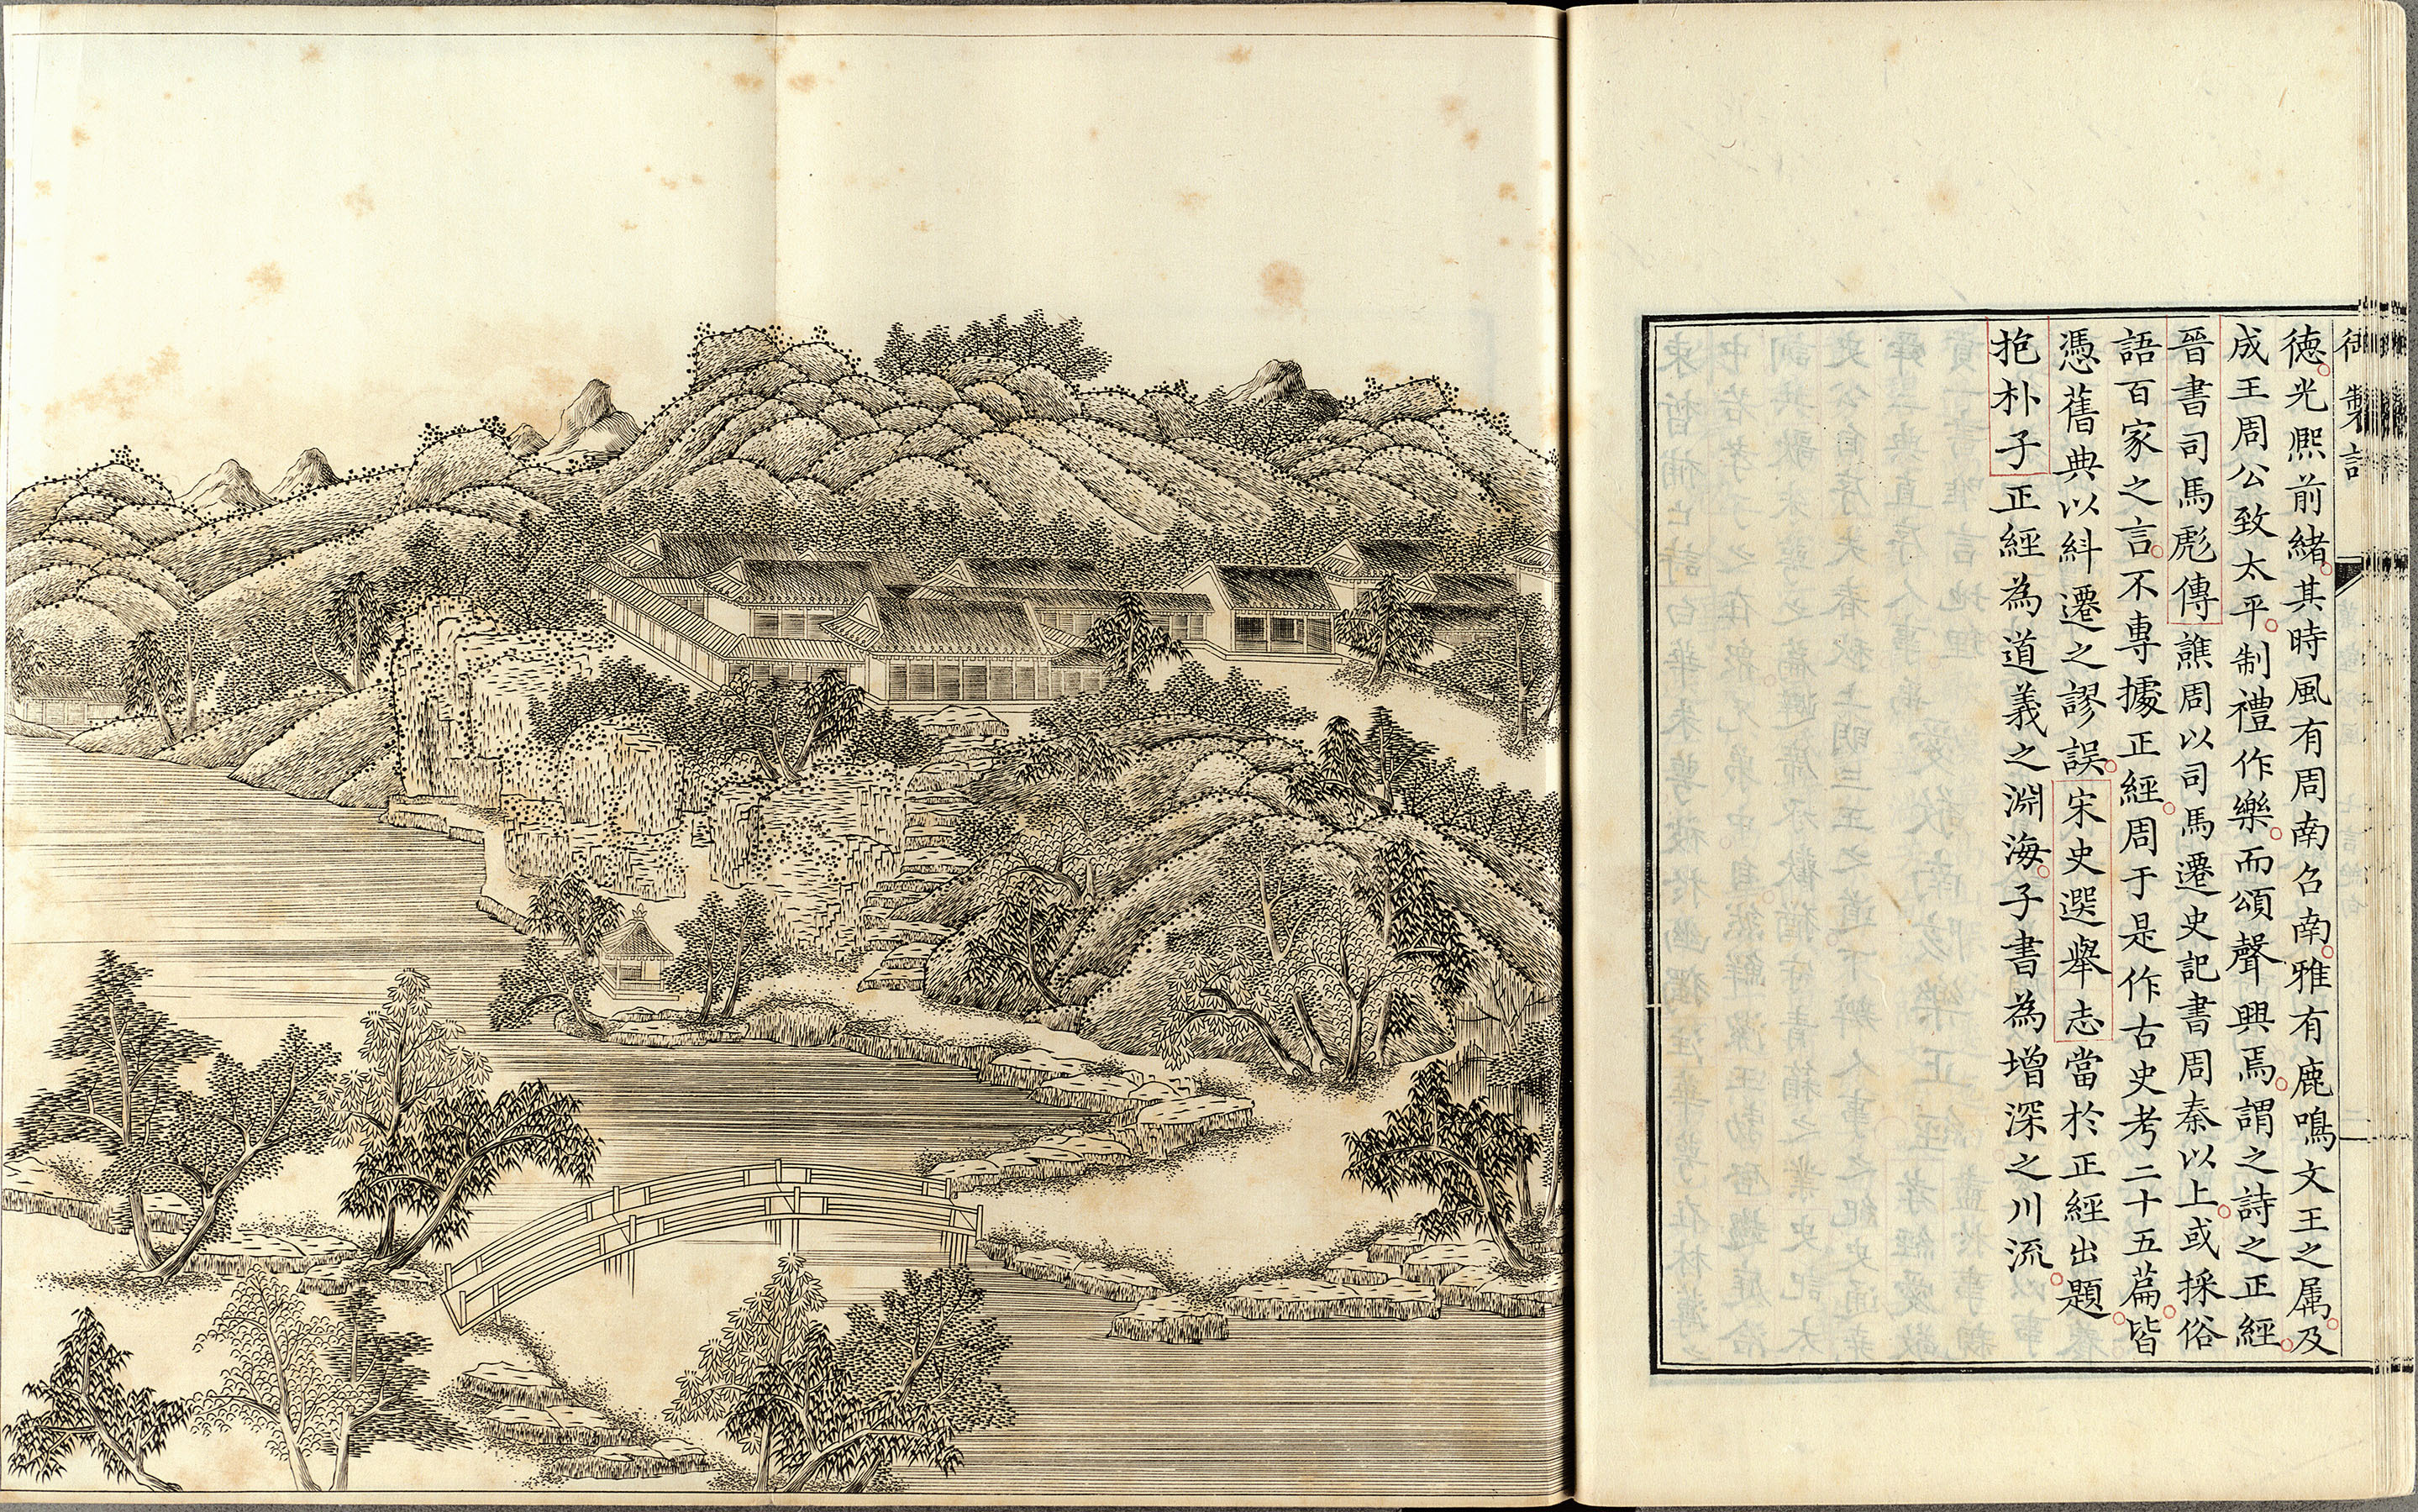 御製詩
德光熙前緒其時風有周南召南雅有鹿鳴文王之属及
成王周公致太平制禮作樂而頌聲興焉謂之詩之正經
晉書司馬彪傳譙周以司馬遷史記書周秦以上或採俗
語百家之言不專據正經周于是作古史考二十五篇皆
憑舊典以糾遷之謬誤宋史選舉志當於正經出題
抱朴子正經為道義之淵海子書為增深之川流